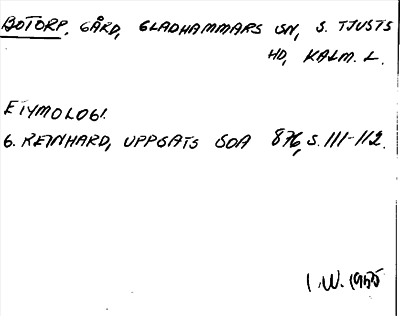 BOTORP, GÅRD, GLADHAMMARS SN, S. TJUSTS
HD, KALM. L.
ETYMOLOGI.
G. REINHARD, UPPSATS SOA 876, S. 111-112.
I.W. 1955